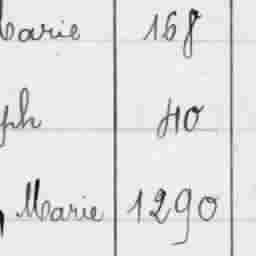 Marie 168
ph 40
Marie 1290